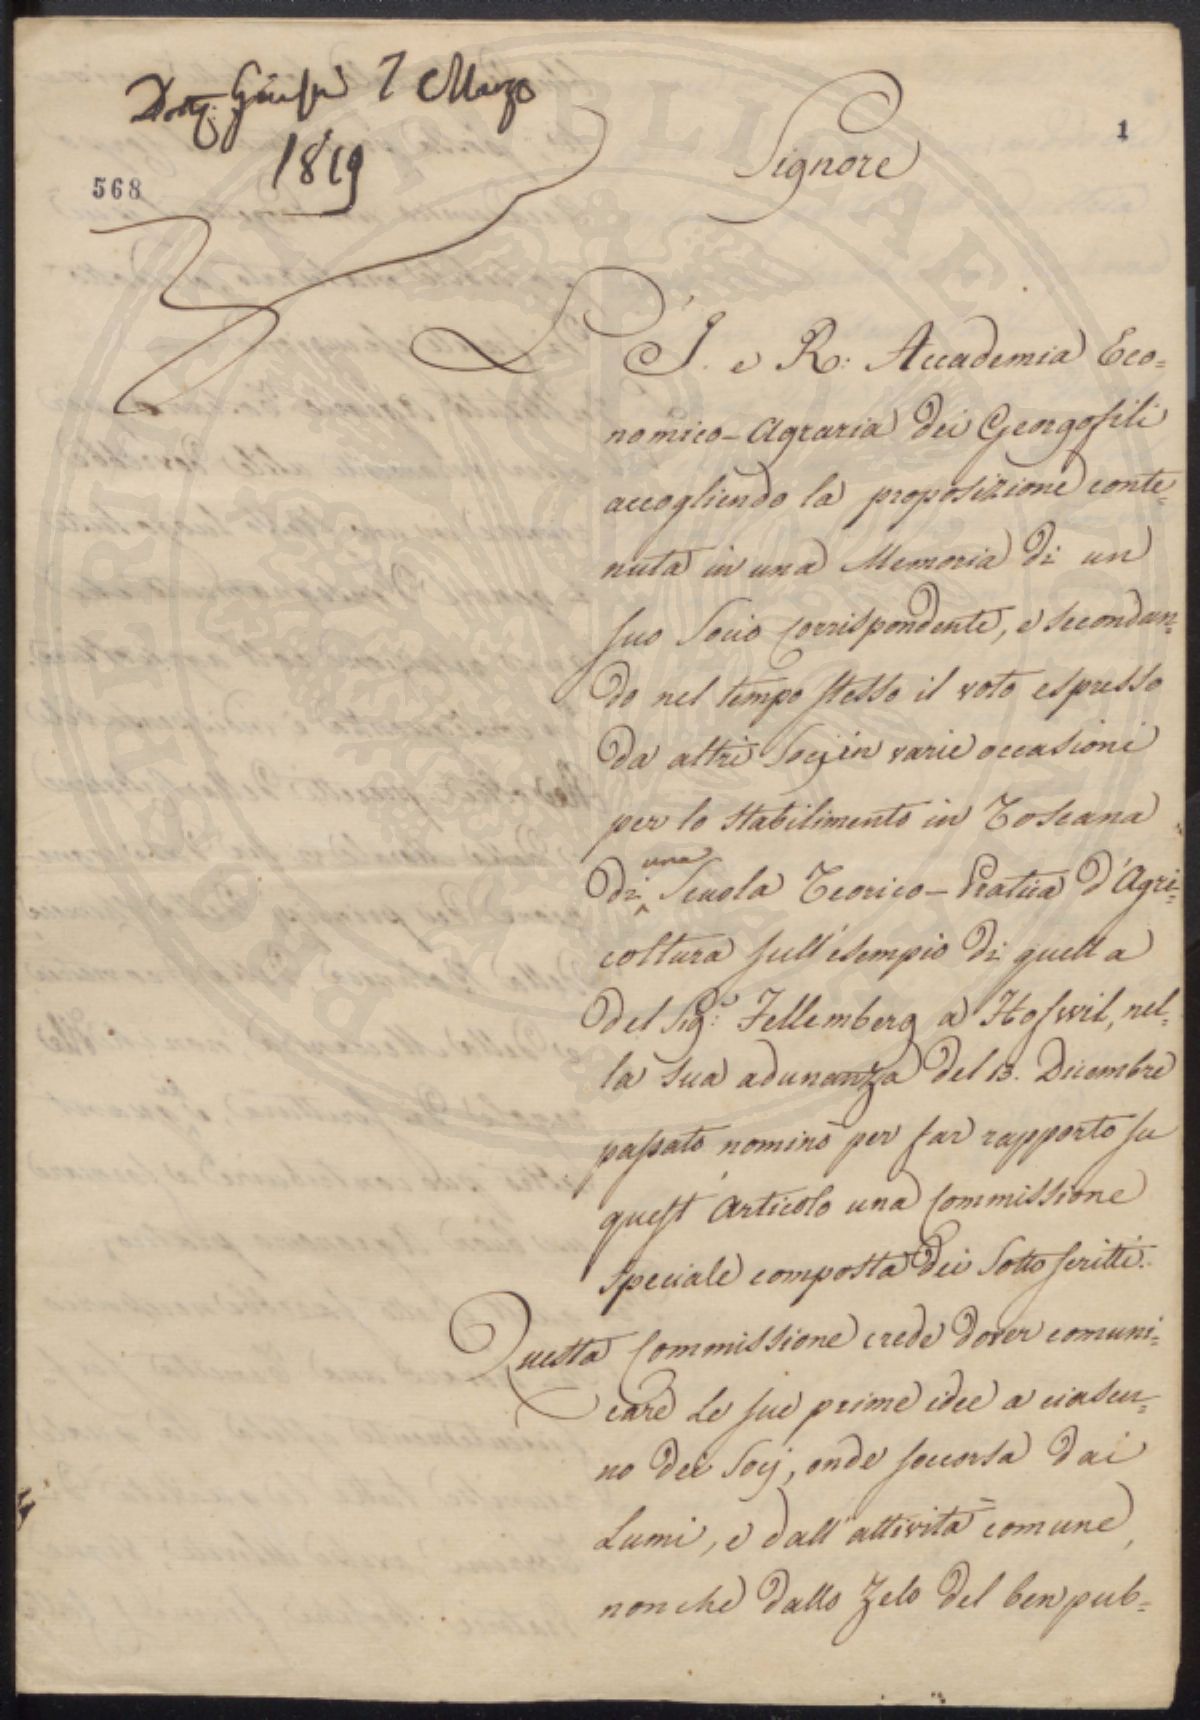 Dott. Giusti 7 Marzo
1819
568
1
Signore
L'I. e R: Accademia Eco=
nomico-Agraria dei Georgofili
accogliendo la proposizione conte=
nuta in una Memoria di un
suo Socio Corrispondente, e secondan=
do nel tempo stesso il voto espresso
da altri Socj in varie occasioni
per lo stabilimento in Toscana
di una Scuola Teorico-Pratica d'Agri=
coltura sull'esempio di quella
del Sig:r Fellemberg a Hofwil, nel=
la sua adunanza del 13. Dicembre
passato nominò per far rapporto su
quest'Articolo una Commissione
speciale composta dei Sottoscritti.
Questa Commissione crede dover comuni=
care le sue prime idee a ciascu=
no dei Socj, onde soccorsa dai
Lumi, e dall'attività comune,
nonchè dallo Zelo del ben pub=